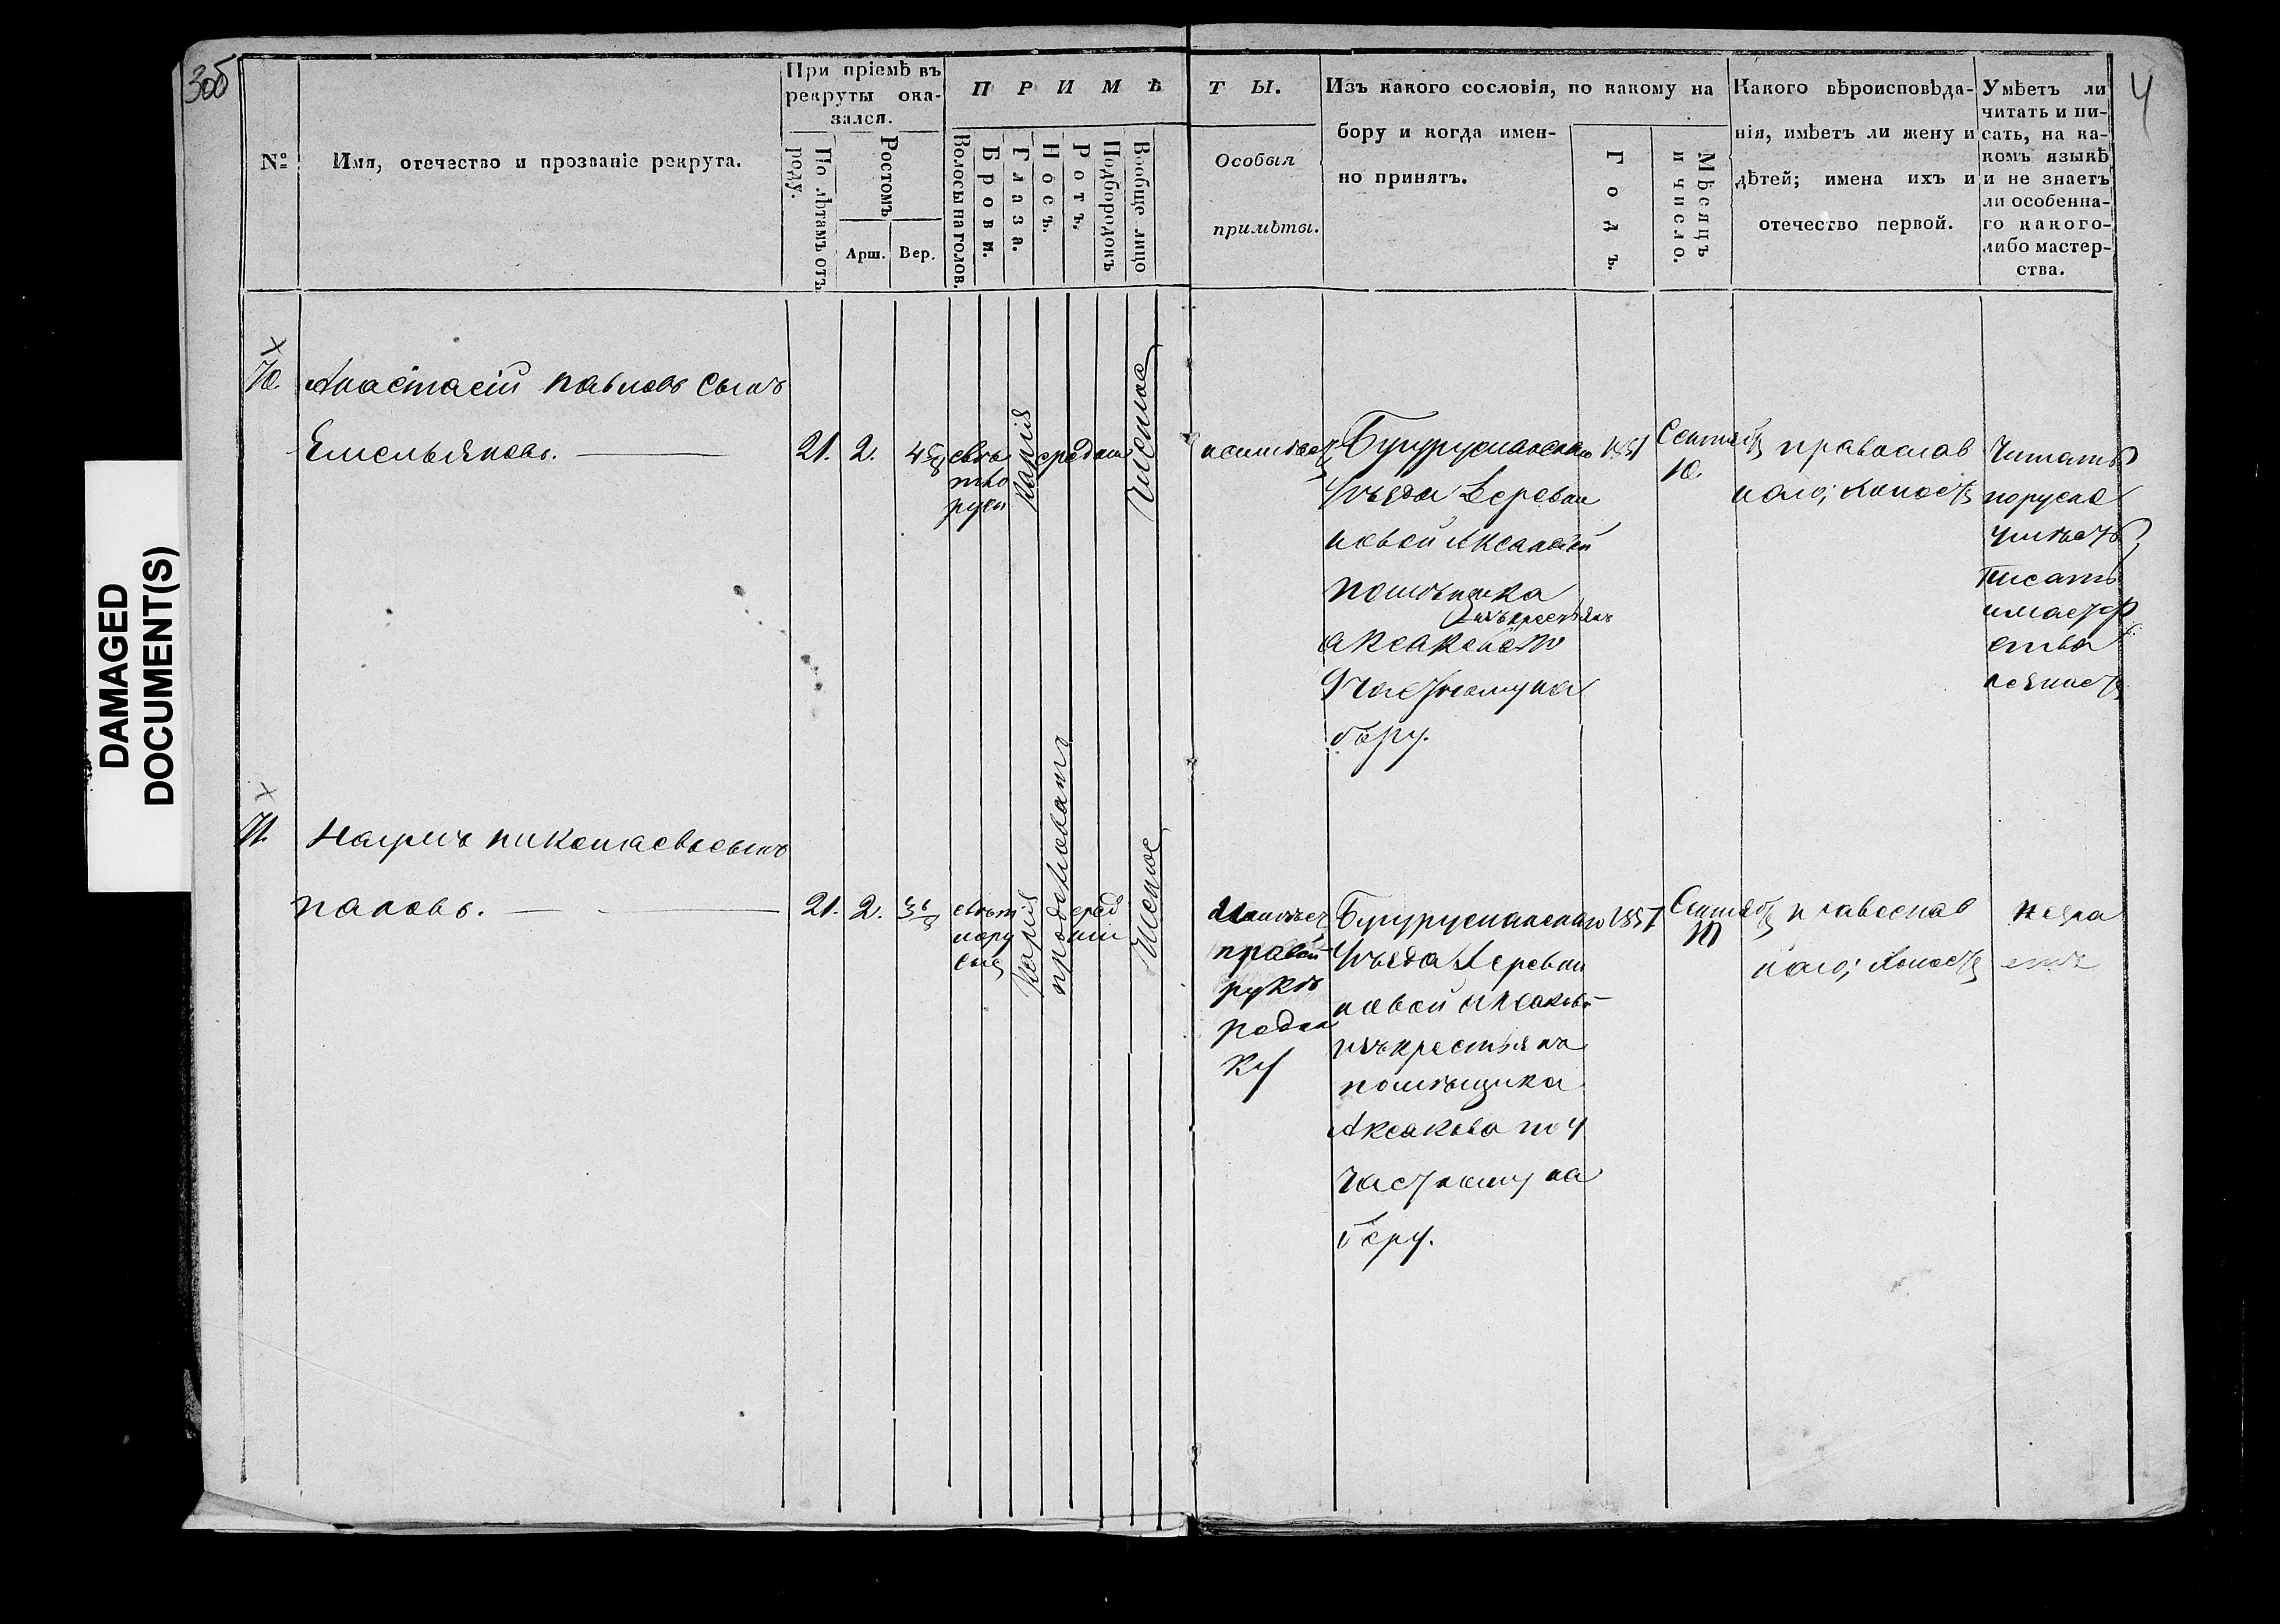 3об
4
DAMAGED
DOCUMENT(S)
№
Имя, отечество и прозваніе рекрута.
При пріемѣ въ
рекруты ока-
зался.
По лѣтамъ отъ
роду.
Ростомъ
Арш.
Вер.
ПРИМѢ
Волосы на голов.
Брови.
Глаза.
Носъ.
Ротъ.
Подбородокъ
Вообще лицо
ТЫ.
Особыя
примѣты.
Изъ какого сословія, по какому на
бору и когда имен-
но принятъ.
Годъ.
Мѣсяцъ
и число.
Какого вѣроисповѣда-
нія, имѣетъ ли жену и
дѣтей; имена ихъ и
отечество первой.
Умѣетъ ли
читать и пи-
сать, на ка-
комъ языкѣ
и не знаетъ
ли особенна-
го какого-
либо мастер-
ства.
70.
Анастасій Павловъ Сынъ
Емельяновъ.
21.
2.
свѣт
ло
русы
Карія
средніи
Чистое
неимѣетъ
Бугурусланскаго
Уѣзда Деревни
новой Аксаковки
помѣщика
изъ крестьянъ
Аксакова по
Участкому на
бору.
1851
Сентября
10.
православ
наго; холостъ
Читать
поруски
умѣетъ,
Писать
имастер
ства
незнаетъ
71.
Наумъ Николаевъ сынъ
Пановъ.
21.
2.
свѣт
лору
сые
Карія
продолговатъ
сред
ніи
Чистое
Имѣетъ
правой
рукѣ
родин
ку
Бугурусланскаго
Уѣзда Деревни
новой Аксаков-
изъ крестьянъ
помѣщика
Аксакова по ч
частному на
бору.
1851
Сентября
10
православ
наго; холостъ
Негра